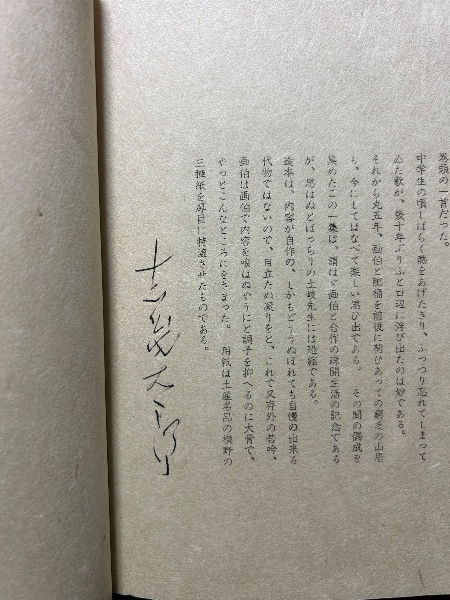 巻頭の一首だつた。
中学生の頃しばらく熱をあげたきり、ふつつり忘れてしまつて
ゐた歌が、幾十年ぶりふと口辺に浮び出たのは妙である。
それから丸五年、画伯と肥桶を前後に荷ひあつての窮乏の山居
も、今にしてはなべて楽しい思ひ出である。その間の偶成を
集めたこの一集は、謂はゞ画伯と合作の疎開生活の記念である
が、思はぬとばつちりの土岐先生には恐縮である。
造本は、内容が自作の、しかもどううぬぼれても自慢の出来る
代物ではないので、目立たぬ凝りをと、これで又存外の苦吟、
画伯は画伯で内容を喰はぬやうにと調子を抑へるのに大骨で、
やつとこんなところにをさまつた。用紙は土産名品の横野の
三椏紙を好目に特漉させたものである。